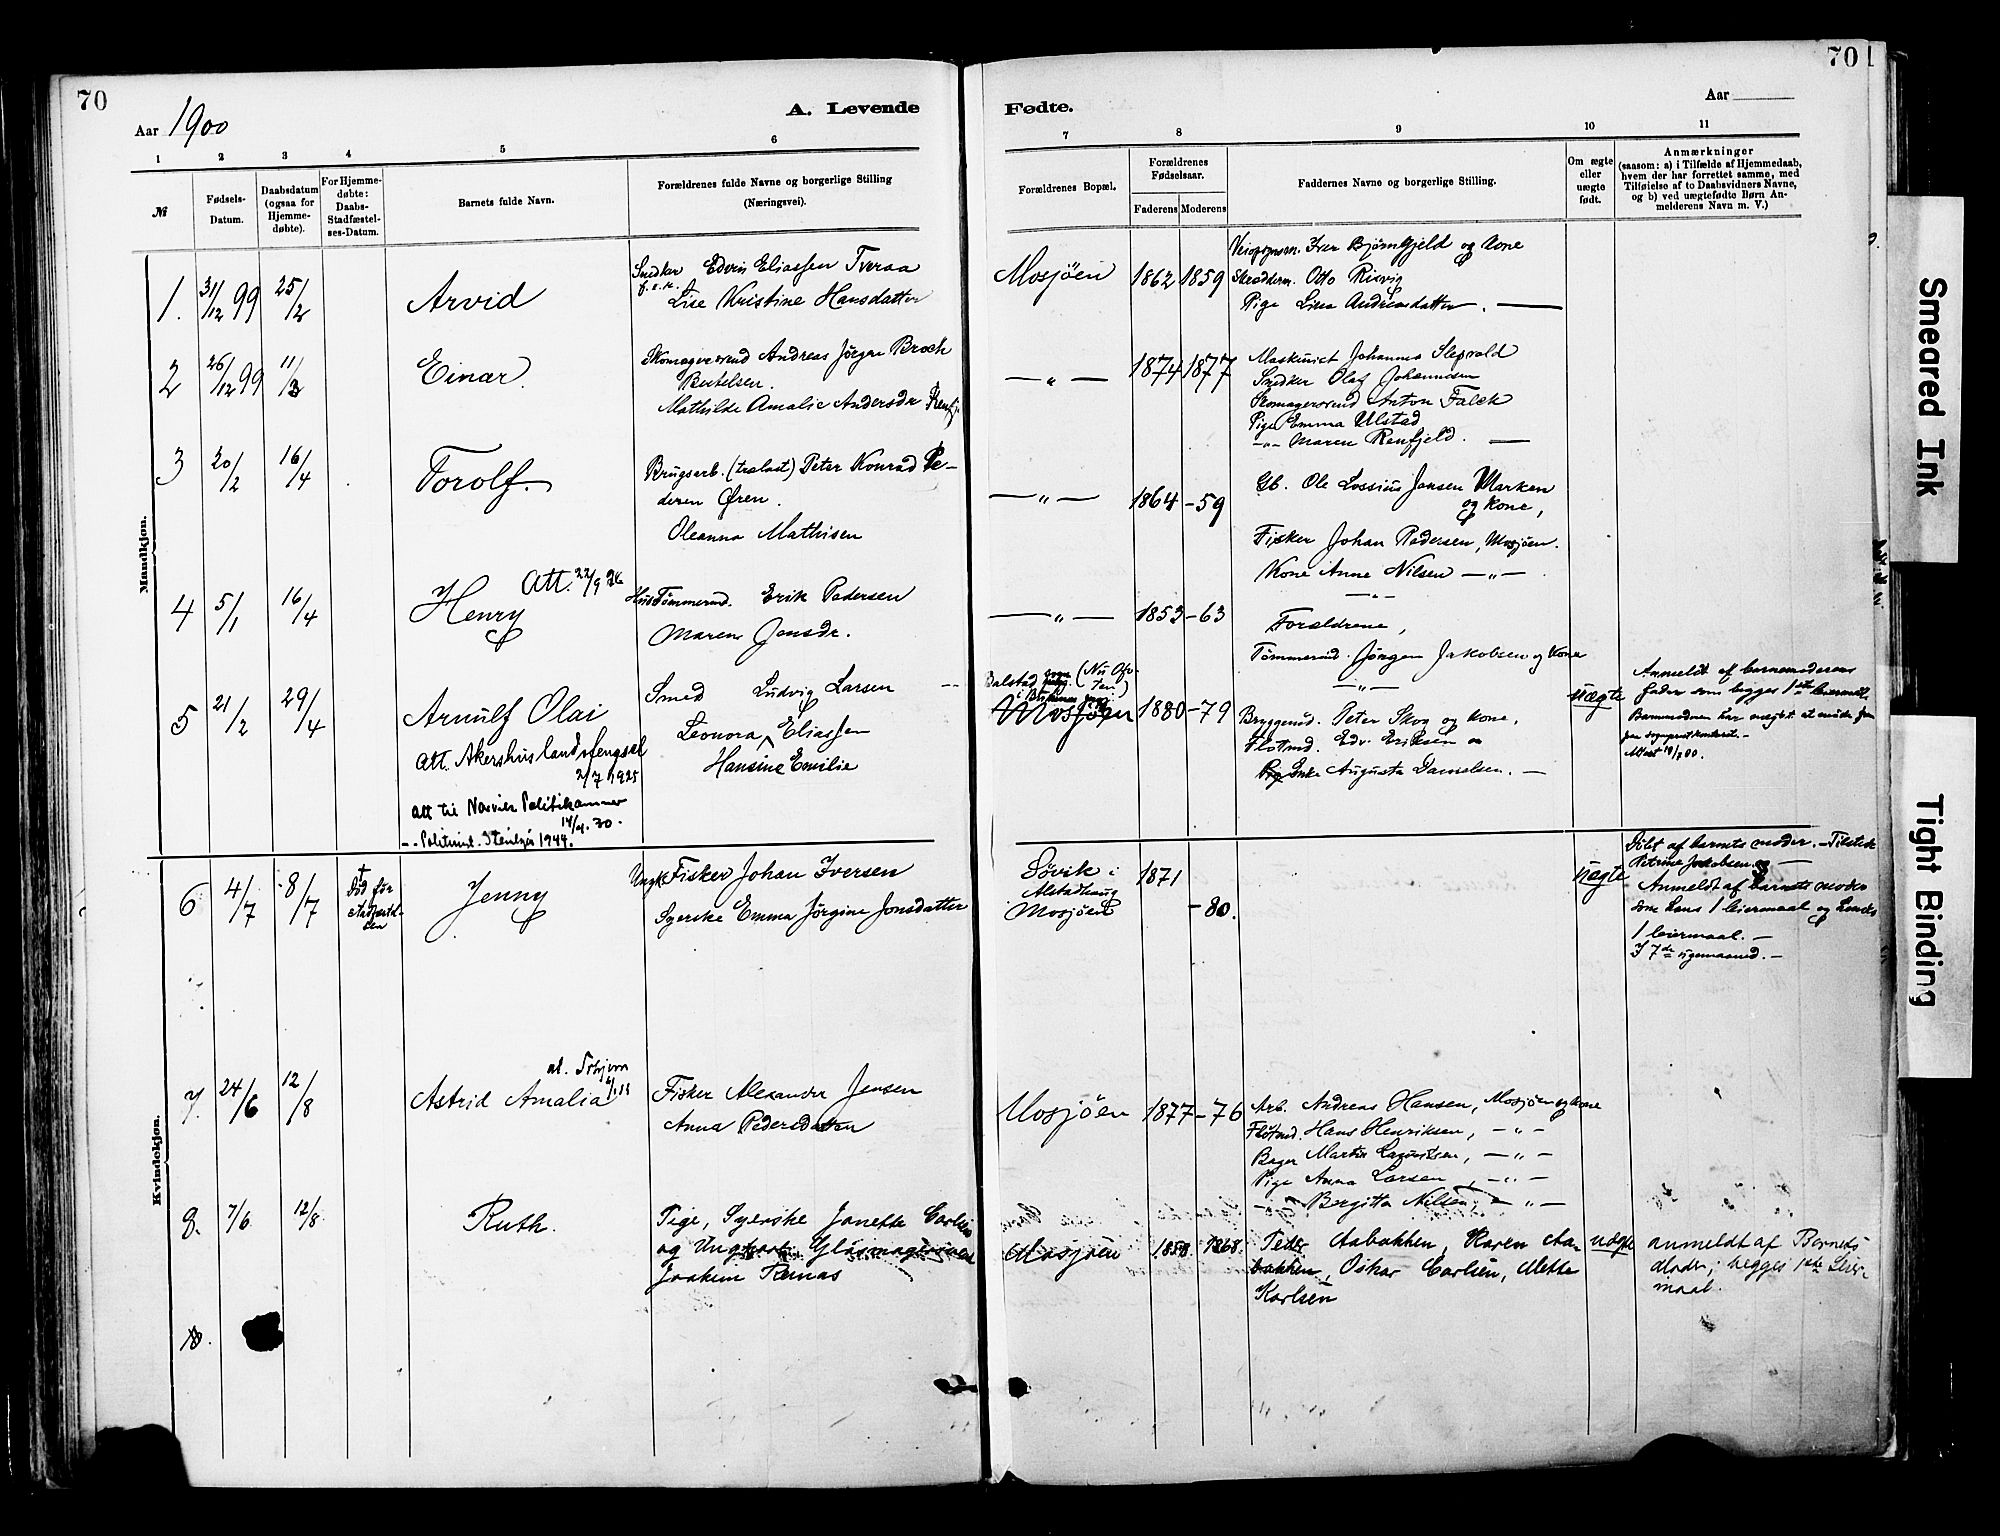 70
Aar 1900
A. Levende
1 2 3 4 5 6
№
Fødsels-
Datum.
Daabsdatum
(ogsaa for
Hjemme-
døbte).
For Hjemme-
døbte:
Daabs-
Stadfæstel-
ses-Datum.
Barnets fulde Navn.
Forældrenes fulde Navne og borgerlige Stilling
(Næringsvei).
Mandkjøn.
1. 31/12 99 25/2 Arvid
Snedker Edvin Eliassen Tveraa
f. e. k.
Lise Kristine Hansdatter
2 26/12 99 11/3 Einar.
Skomagersvend Andreas Jørgen Broch
Bertelsen.
Mathilde Amalie Andersdr
3 20/2 16/4 Torolf.
Brugserb. (tralast) Peter Konrad Pe-
dersen Øren.
Oleanna Mathisen
4 5/1 16/4 Henry Att. 22/9 26
Tømmermd. Erik Pedersen
Maren Jonsdr.
5 21/2 29/4 Arnulf Olai
Smed Ludvig Larsen
Leonora Eliassen
Hansine Emilie
Att. Akershus landsfengsel
2/7 1925
Att til Narvik Politikammer
30.
1944.
Kvindekjøn.
6 4/7 8/7 † Død før
Jenny
Ungk. Fisker Johan Iversen
Syerske Emma Jørgine Jonsdatter
7. 24/6 12/8 Astrid Amalia
Fisker Alexander Jensen
Anna Pedersdatter
8. 7/6 12/8 Ruth.
Pige, Syerske Janette Carlsen
og Ungkarl, Glasmagersvend
Joakim Remas
70
Fødte.
Aar
7 8 9 10 11
Forældrenes Bopæl.
Forældrenes
Fødselsaar.
Faderens Moderens
Faddernes Navne og borgerlige Stilling.
Om ægte
eller
uægte
født.
Anmærkninger
(saasom: a) i Tilfælde af Hjemmedaab,
hvem der har forrettet samme, med
Tilføielse af to Daabsvidners Navne,
og b) ved uægtefødte Børn An-
melderens Navn m. V.)
Mosjøen 1862 1859
Iver Bjørnfjeld og Kone
Otto Risvig
Pige Lina Andreasdatter.
— „ — 1874 1877
Maskinist Johannes
Snedker Olaf Johannesen
Skomagersvend Anton Falck
Pige Emma Ulstad
— „ — Maren Renfjeld.
— „ — 1864 – 59
Gb. Ole Lossius Jansen Marken
og Kone,
Fisker Johan Pedersen, Mosjøen.
Kone Anne Nilsen — „ —
— „ —
— „ — 1853 – 63
Forældrene,
Tømmermd. Jørgen Jakobsen og Kone
— „ —
Balstad
Mosjøen 1880 – 79
Bryggemd. Peter Skog og Kone,
Flotmd. Edv. Eriksen
Enke Augusta Danielsen.
uægte
Anmeldt af barnemoderens
fader som begges 1ste leiermaal.
Søvik i
Alstadhaug 1871
Mosjøen – 80.
uægte
Døbt af barnets moder. –
Petrine Jakobsen.
Anmeldt af barnets moder
som hans 1 leiermaal og hendes
1 leiermaal. –
I 7de
Mosjøen 1877 – 76
Arb. Andreas Hansen, Mosjøen og Kone
Flotmd. Hans Henriksen, — „ —
Bager Martin — „ —
Pige Anna Larsen, — „ —
— „ — Bergitta Nilsen, — „ —
Mosjøen 1858 1868.
Peder Aabakken, Karen Aa-
bakken, Oskar Carlsen, Mette
Karlsen
uægte
anmeldt af Barnets
Moder; begges 1ste Leier-
maal.
Smeared Ink
Tight Binding